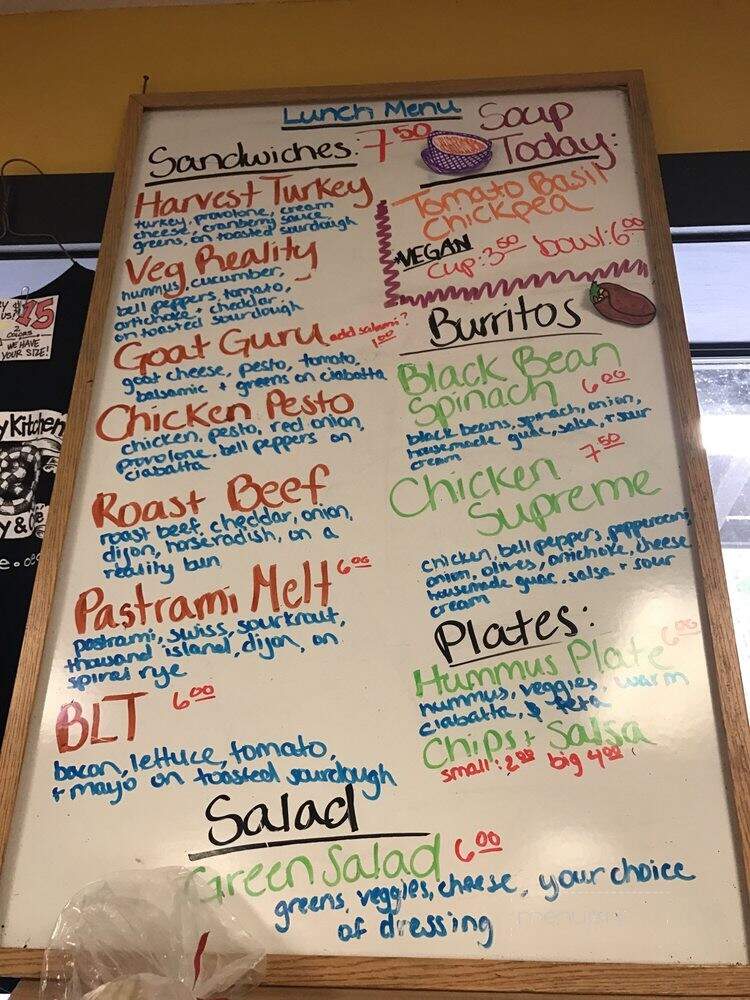 Lunch Menu
Sandwiches: 7 50
Harvest Turkey
turkey, provolone, cream
cheese, cranberry sauce,
greens, on toasted sourdough
Veg Reality
hummus, cucumber,
bell peppers, tomato,
artichoke + cheddar,
on toasted sourdough
Goat Guru add salami? 1.00
goat cheese, pesto, tomato,
balsamic + greens on ciabatta
Chicken Pesto
chicken, pesto, red onion,
provolone, bell peppers on
ciabatta
Roast Beef
roast beef, cheddar, onion,
dijon, horseradish, on a
reality bun
Pastrami Melt 6.00
pastrami, swiss, sourkrout,
thousand island, dijon, on
spiral rye
BLT 6 00
bacon, lettuce, tomato,
+ mayo on toasted sourdough
Soup
Today:
Tomato Basil
Chickpea
VEGAN
cup: 3.50 bowl: 6.00
Burritos
Black Bean
Spinach 6.00
black beans, spinach, onion,
housemade guac, salsa, + sour
cream
Chicken 7.50
Supreme
chicken, bell peppers, pepperocini,
onion, olives, artichoke, cheese
housemade guac, salsa + sour
cream
Plates:
Hummus Plate 6.00
hummus, veggies, warm
ciabatta, & feta
Chips + Salsa
small: 2.00 big 4.00
Salad
Green Salad 6.00
greens, veggies, cheese, your choice
of dressing
$15
2
COLORS
WE HAVE
YOUR SIZE!
y Kitchen
y &